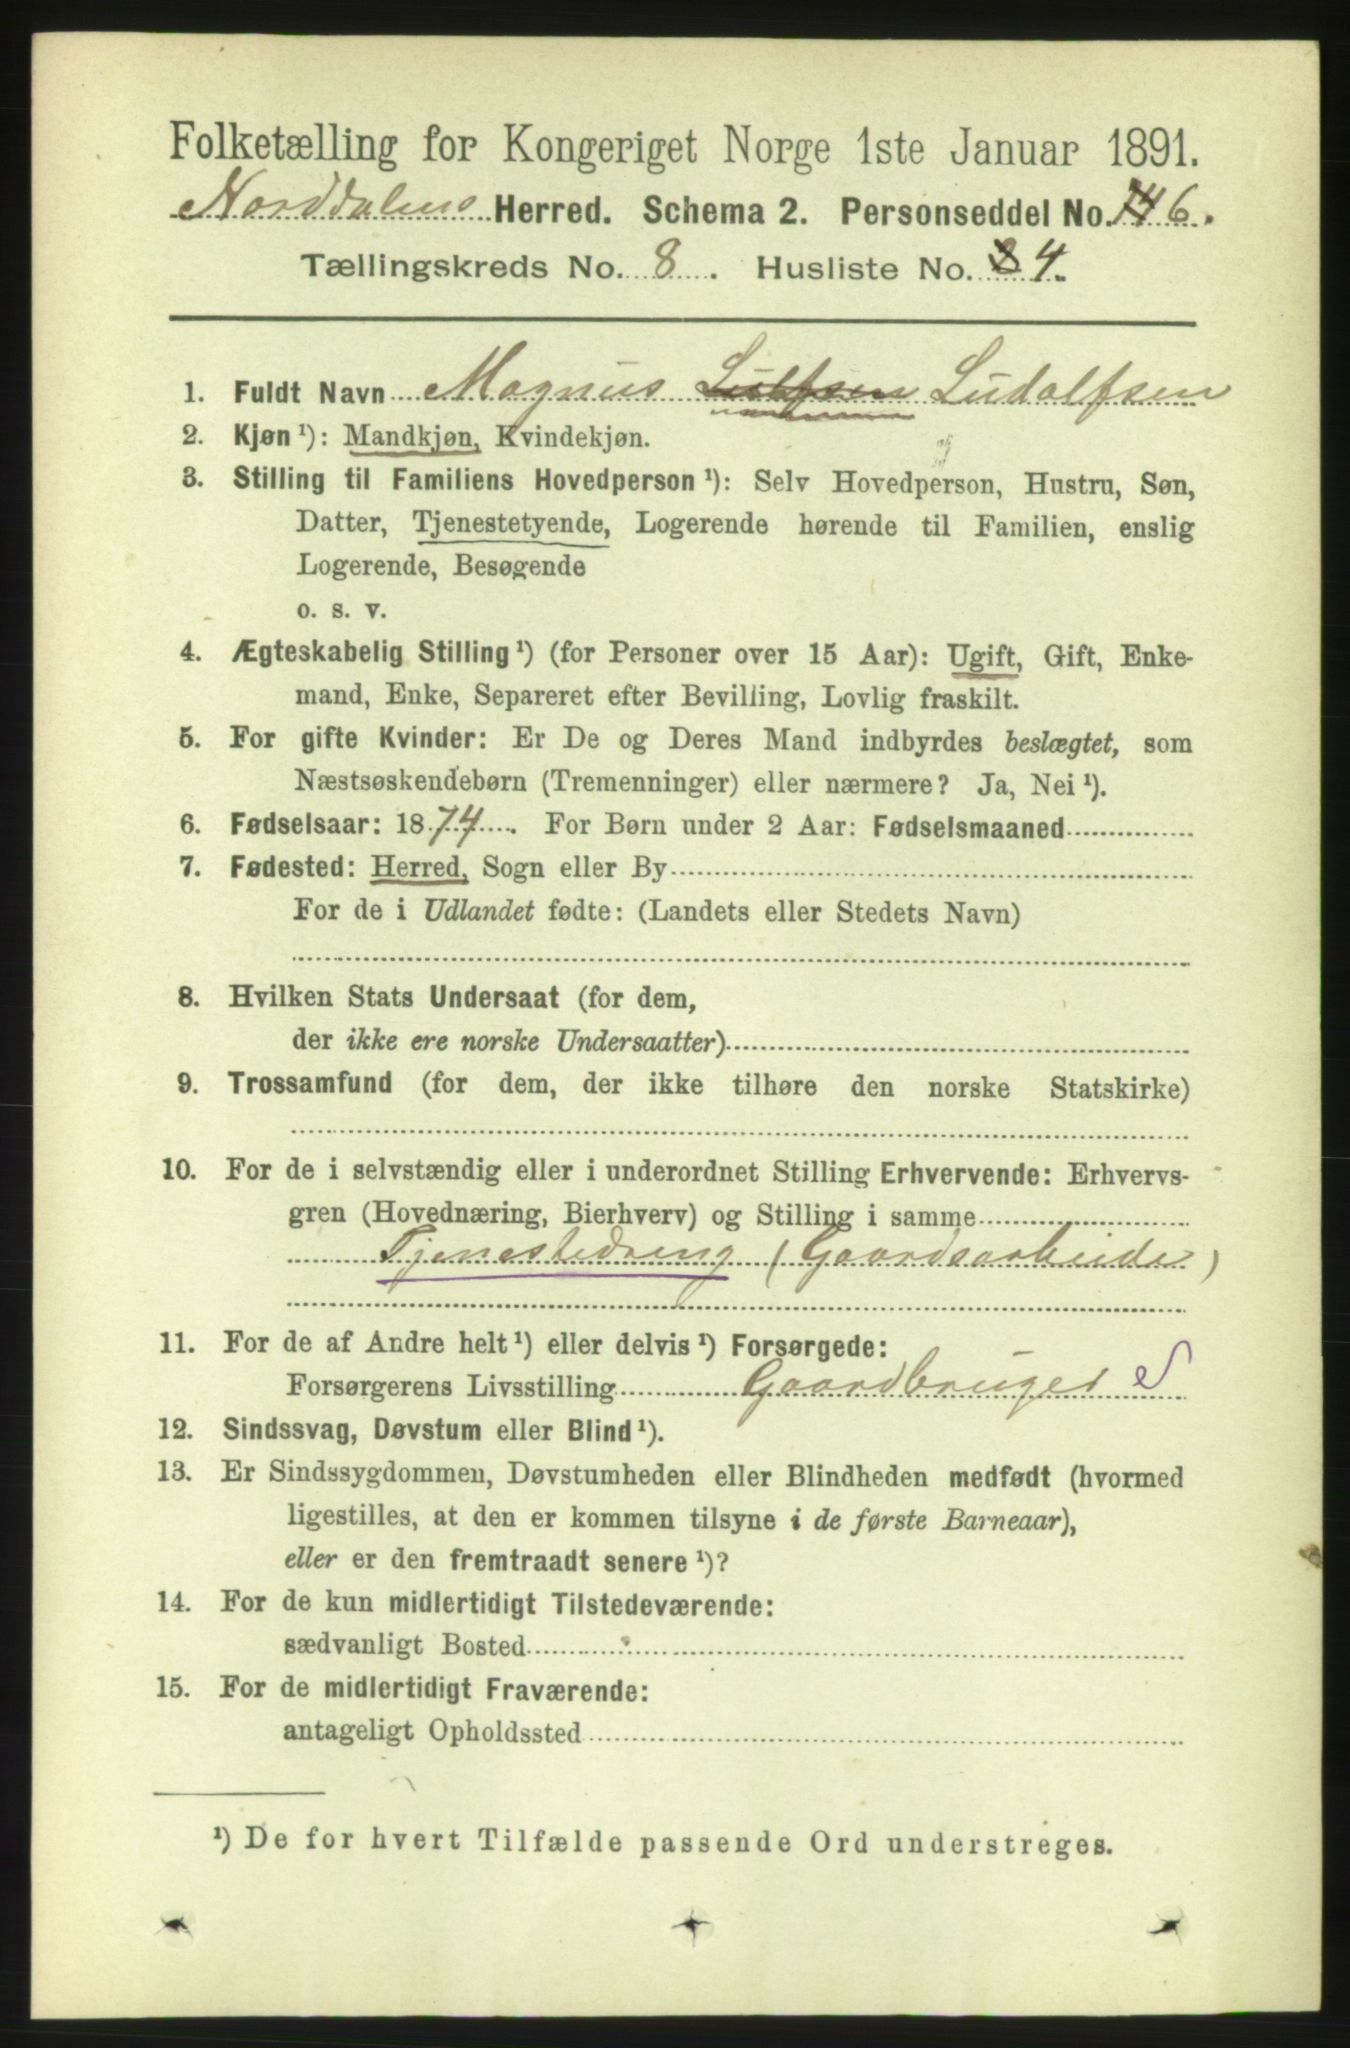 Folketælling for Kongeriget Norge 1ste Januar 1891.
Norddalens Herred. Schema 2. Personseddel No. 6.
Tællingskreds No. 8. Husliste No. 4.
1. Fuldt Navn Magnus Ludolfsen
2. Kjøn ¹): Mandkjøn, Kvindekjøn.
3. Stilling til Familiens Hovedperson ¹): Selv Hovedperson, Hustru, Søn,
Datter, Tjenestetyende, Logerende hørende til Familien, enslig
Logerende, Besøgende
o. s. v.
4. Ægteskabelig Stilling ¹) (for Personer over 15 Aar): Ugift, Gift, Enke-
mand, Enke, Separeret efter Bevilling, Lovlig fraskilt.
5. For gifte Kvinder: Er De og Deres Mand indbyrdes beslægtet, som
Næstsøskendebørn (Tremenninger) eller nærmere? Ja, Nei ¹).
6. Fødselsaar: 1874. For Børn under 2 Aar: Fødselsmaaned
7. Fødested: Herred, Sogn eller By
For de i Udlandet fødte: (Landets eller Stedets Navn)
8. Hvilken Stats Undersaat (for dem,
der ikke ere norske Undersaatter)
9. Trossamfund (for dem, der ikke tilhøre den norske Statskirke)
10. For de i selvstændig eller i underordnet Stilling Erhvervende: Erhvervs-
gren (Hovednæring, Bierhverv) og Stilling i samme
Tjenestedreng (Gaardsarbeide)
11. For de af Andre helt ¹) eller delvis ¹) Forsørgede:
Forsørgerens Livsstilling Gaardbruger S
12. Sindssvag, Døvstum eller Blind ¹).
13. Er Sindssygdommen, Døvstumheden eller Blindheden medfødt (hvormed
ligestilles, at den er kommen tilsyne i de første Barneaar),
eller er den fremtraadt senere ¹)?
14. For de kun midlertidigt Tilstedeværende:
sædvanligt Bosted
15. For de midlertidigt Fraværende:
antageligt Opholdssted
¹) De for hvert Tilfælde passende Ord understreges.